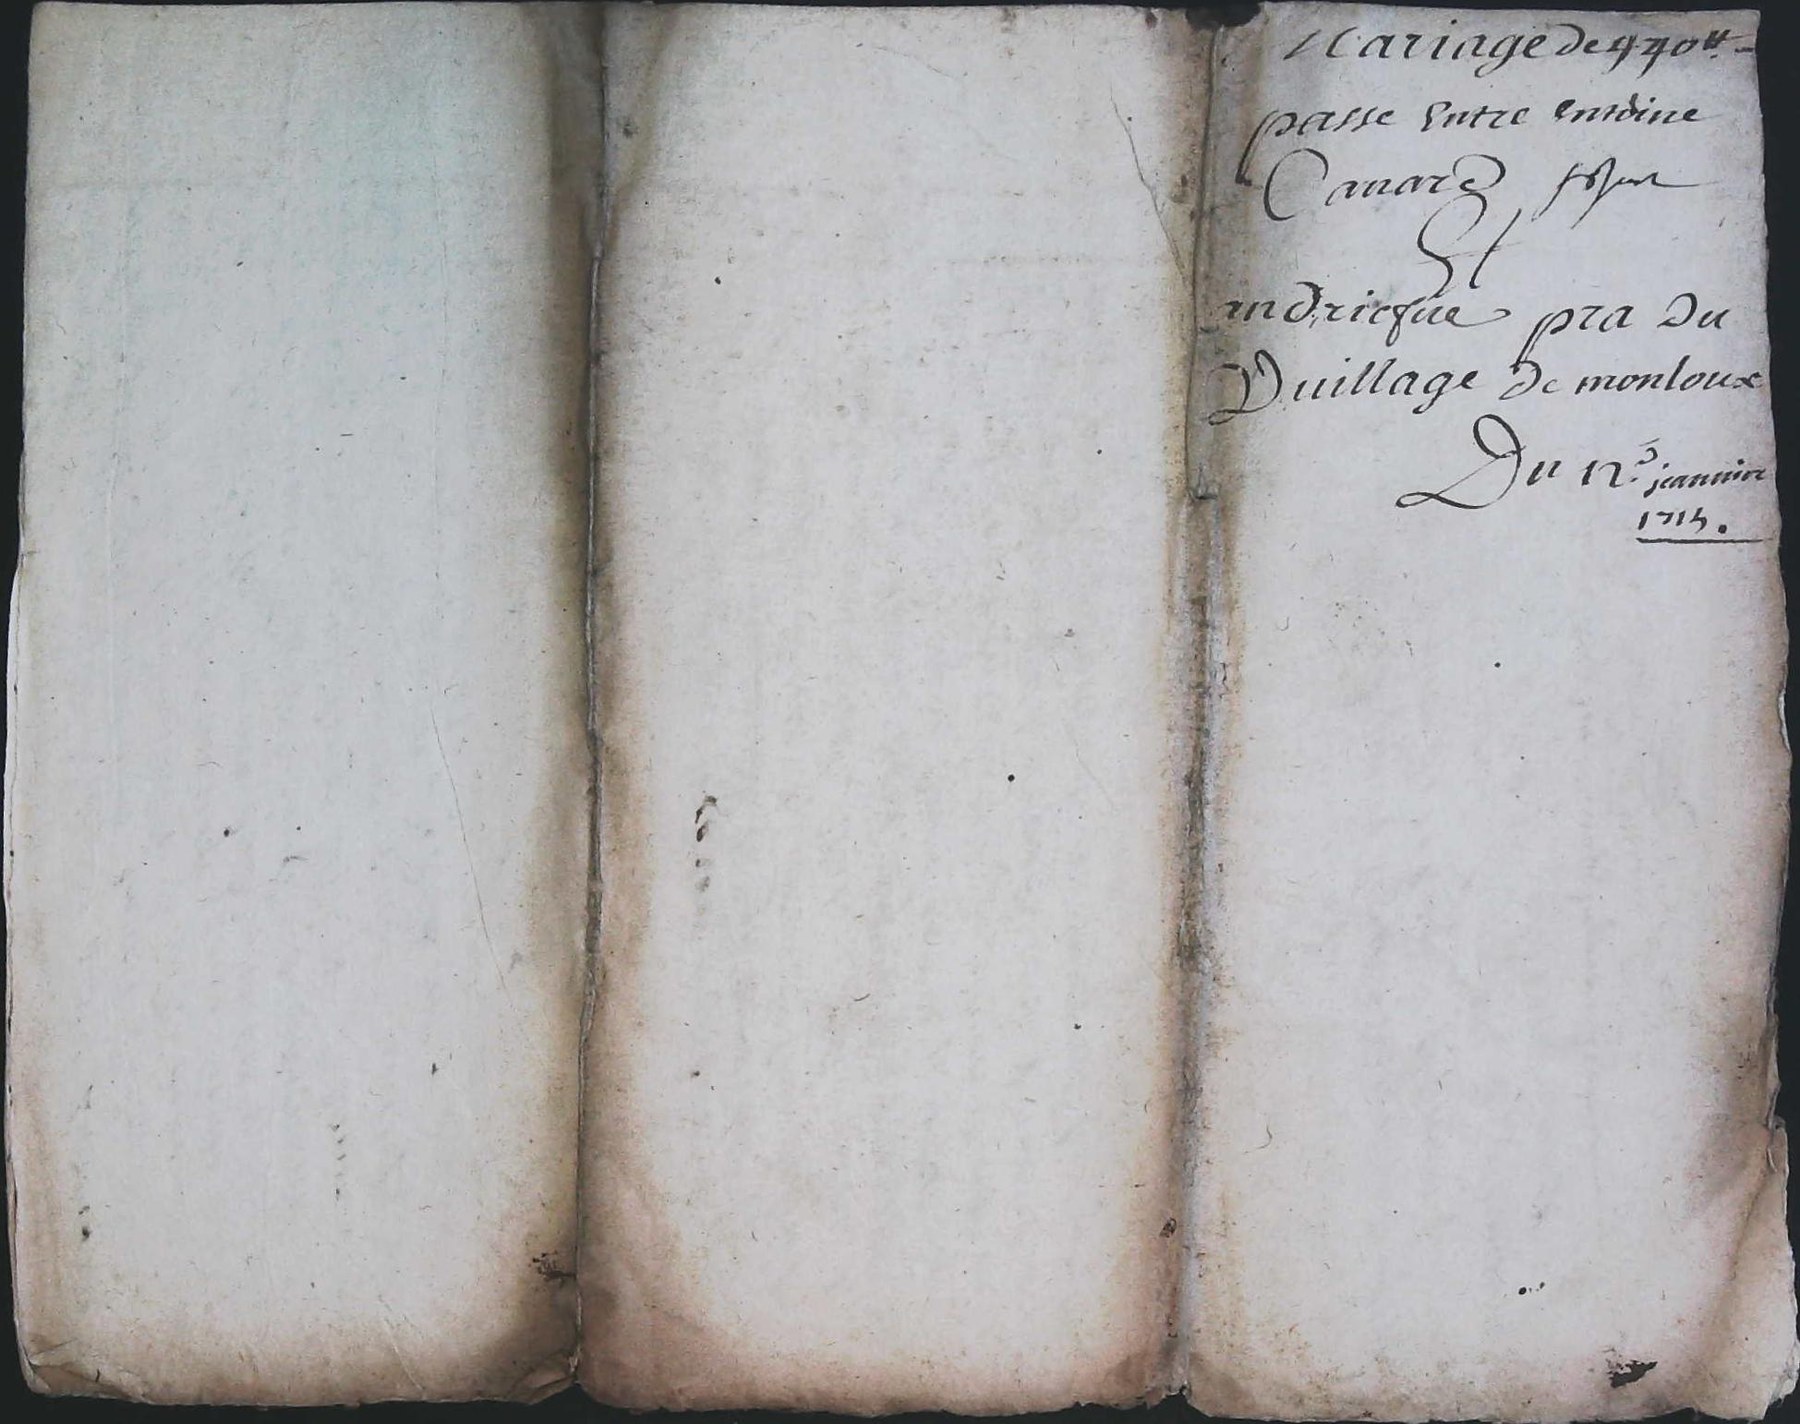 Mariage de 440 ₶
passe Entre entoine
Canard
Et
andrieque pra du
Vuillage de monloux
Du 12e jeanuire
1715.